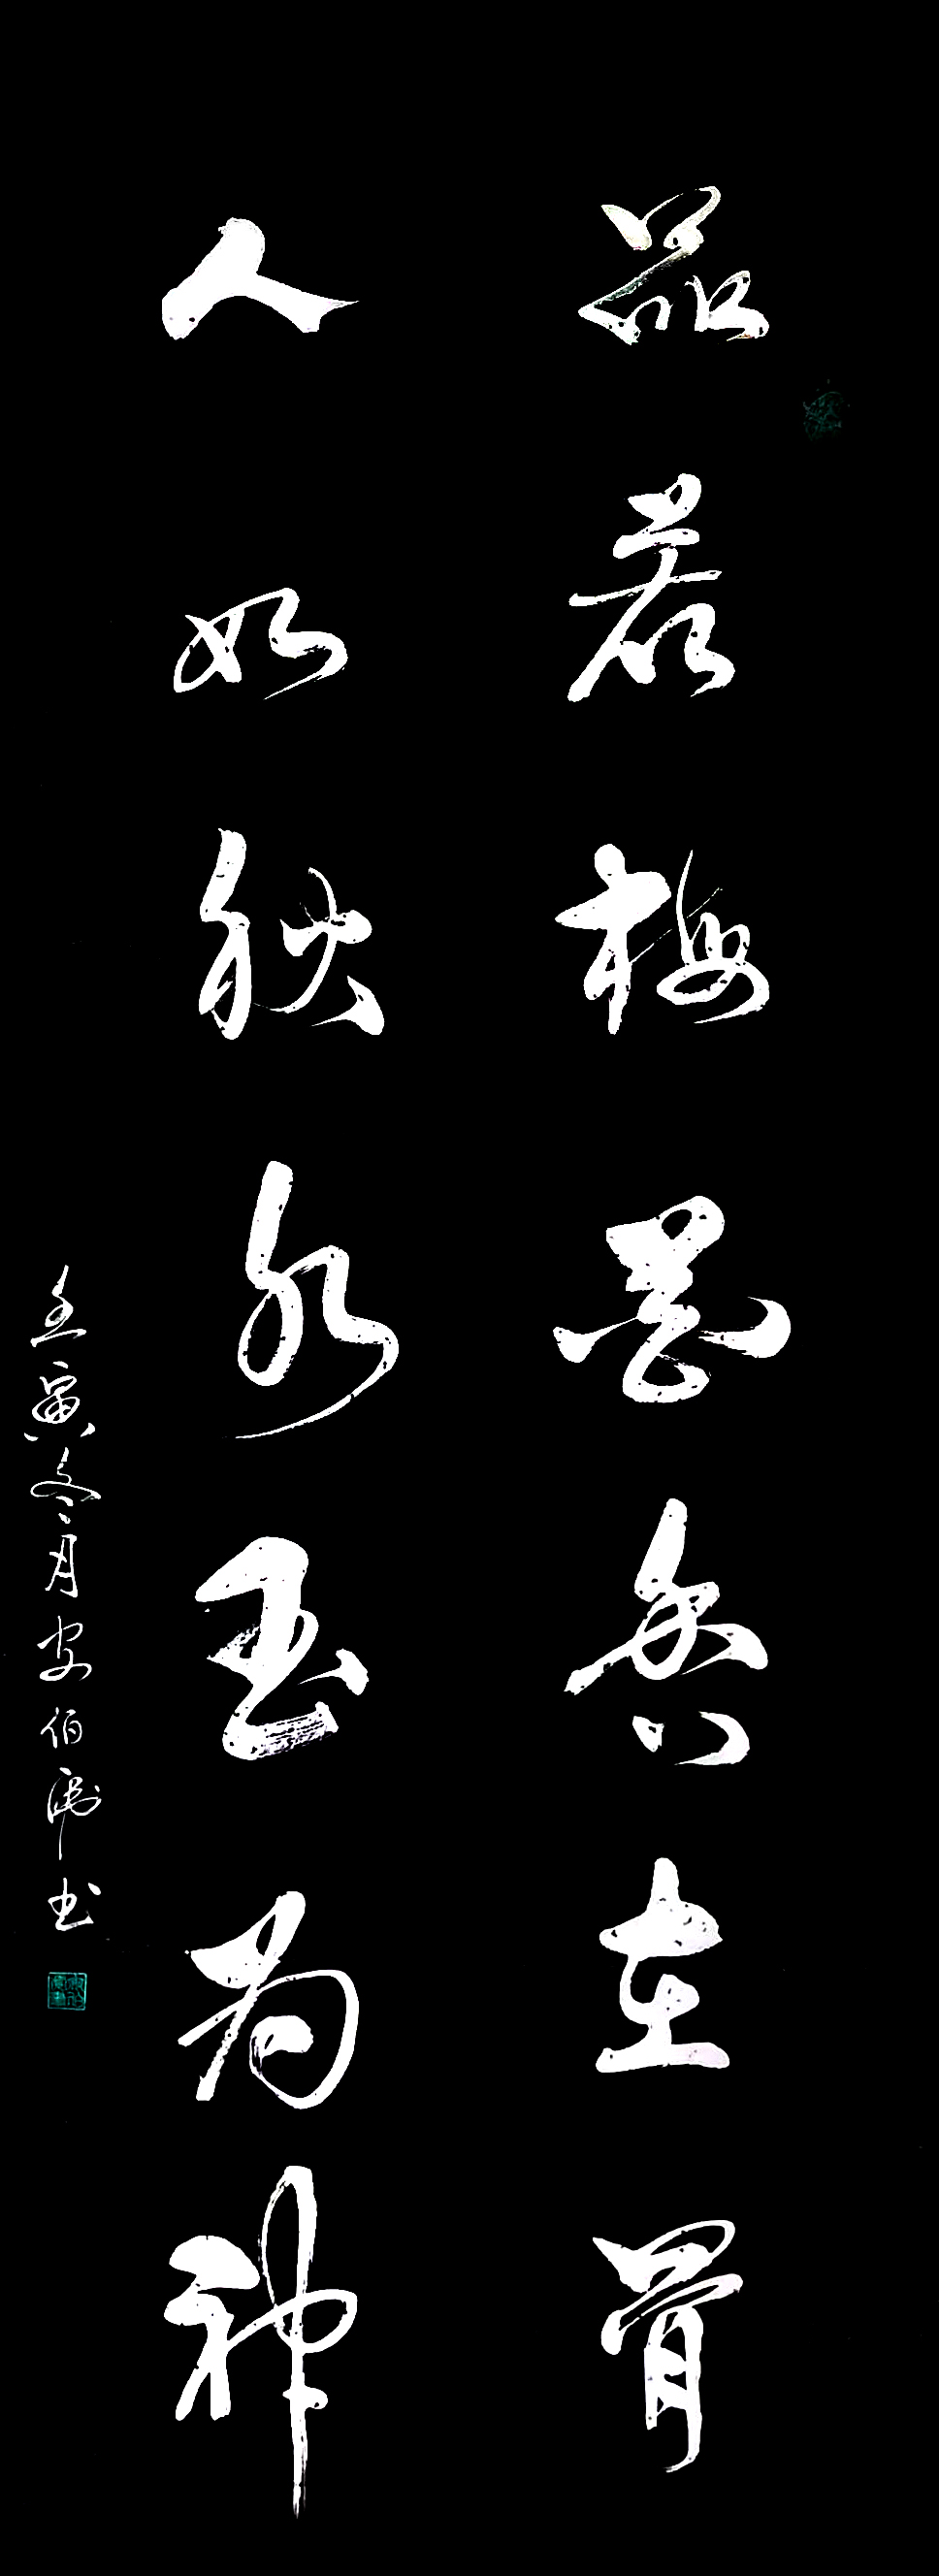 品若梅花香在骨
人如秋水玉为神
壬寅冬月安伯衛书